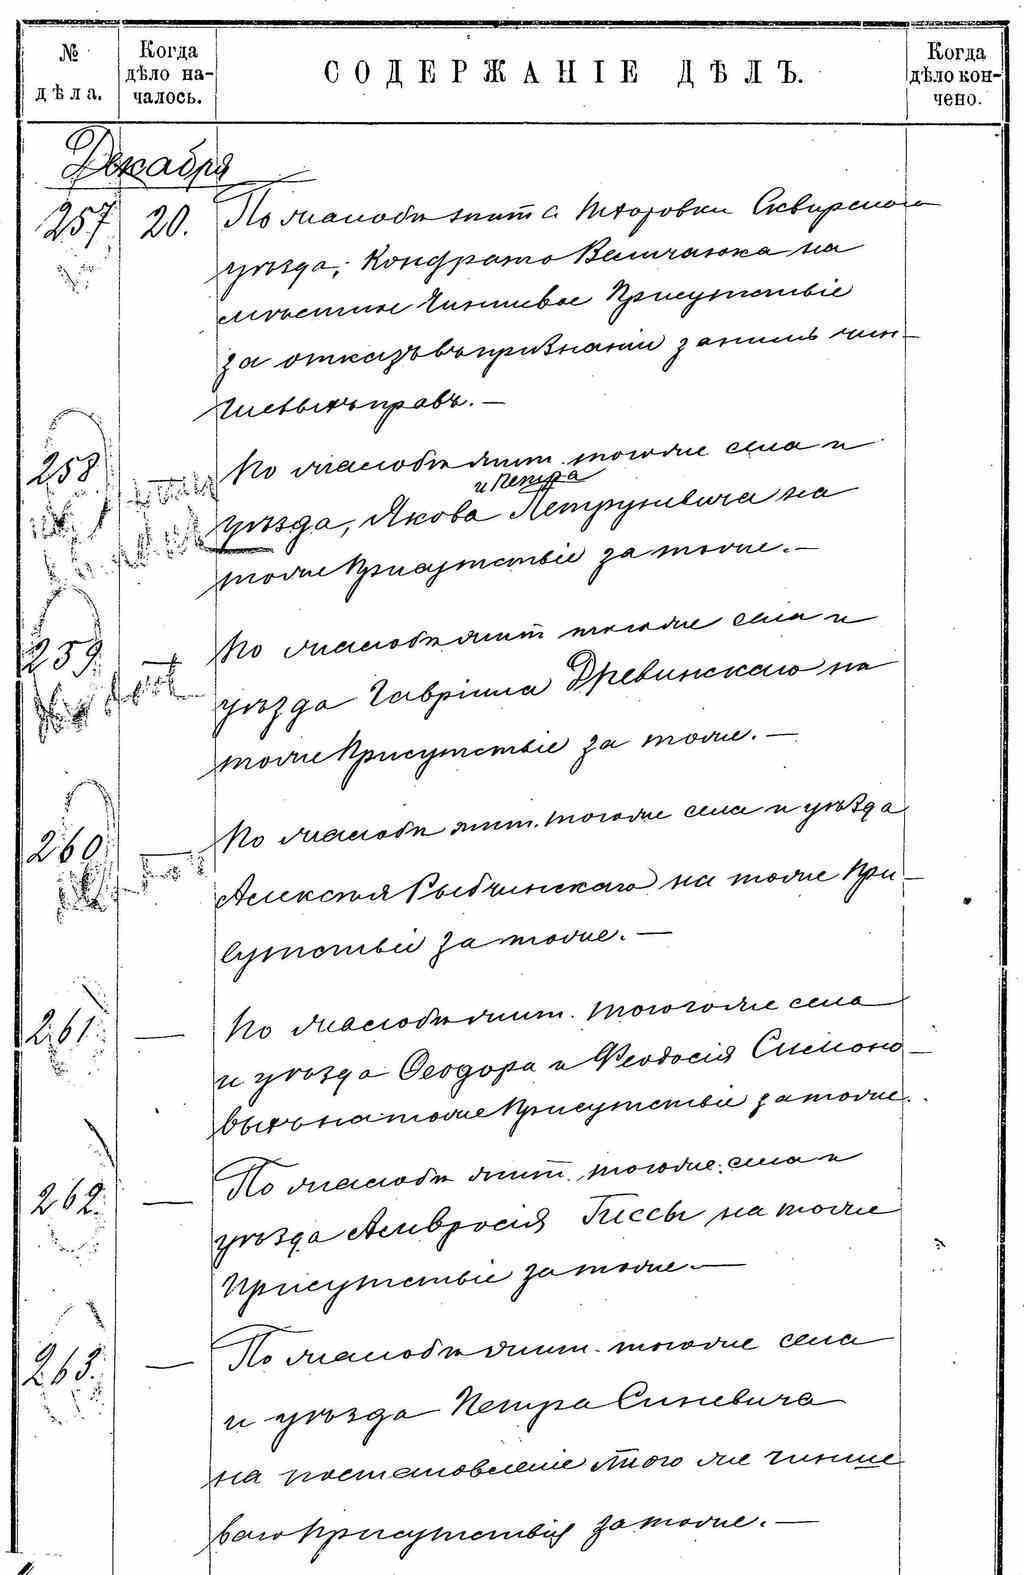 № дѣла.
Когда дѣло на-чалось.
СОДЕРЖАНІЕ ДѢЛЪ.
Когда дѣло кон-чено.
Декабря
257 20. По жалобѣ жит. с. Сквирскаго
уѣзда, Кондрата Величанюка на
мѣстное Чиншевое Присутствіе
за отказъ въ признаніи за нимъ чин-
шевыхъ правъ.—
258 По жалобѣ жит. тогоже села и
и Петра
уѣзда, Якова Петруневича на
тоже Присутствіе за тоже.—
259 — По жалобѣ жит. тогоже села и
уѣзда Гавріила Древинскаго на
тоже Присутствіе за тоже.—
260 — По жалобѣ жит. тогоже села и уѣзда
Алексѣя Рыбчинскаго на тоже При-
сутствіе за тоже.—
261 — По жалобѣ жит. тогоже села
и уѣзда Ѳеодора и Ѳеодосія Симоно-
выхъ на тоже Присутствіе за тоже.
262. — По жалобѣ жит. тогоже села и
уѣзда Амвросія Гиссы на тоже
Присутствіе за тоже.—
263. — По жалобѣ жит. тогоже села
и уѣзда Петра Синевича
на постановленіе того же чинше
ваго Присутствія за тоже.—